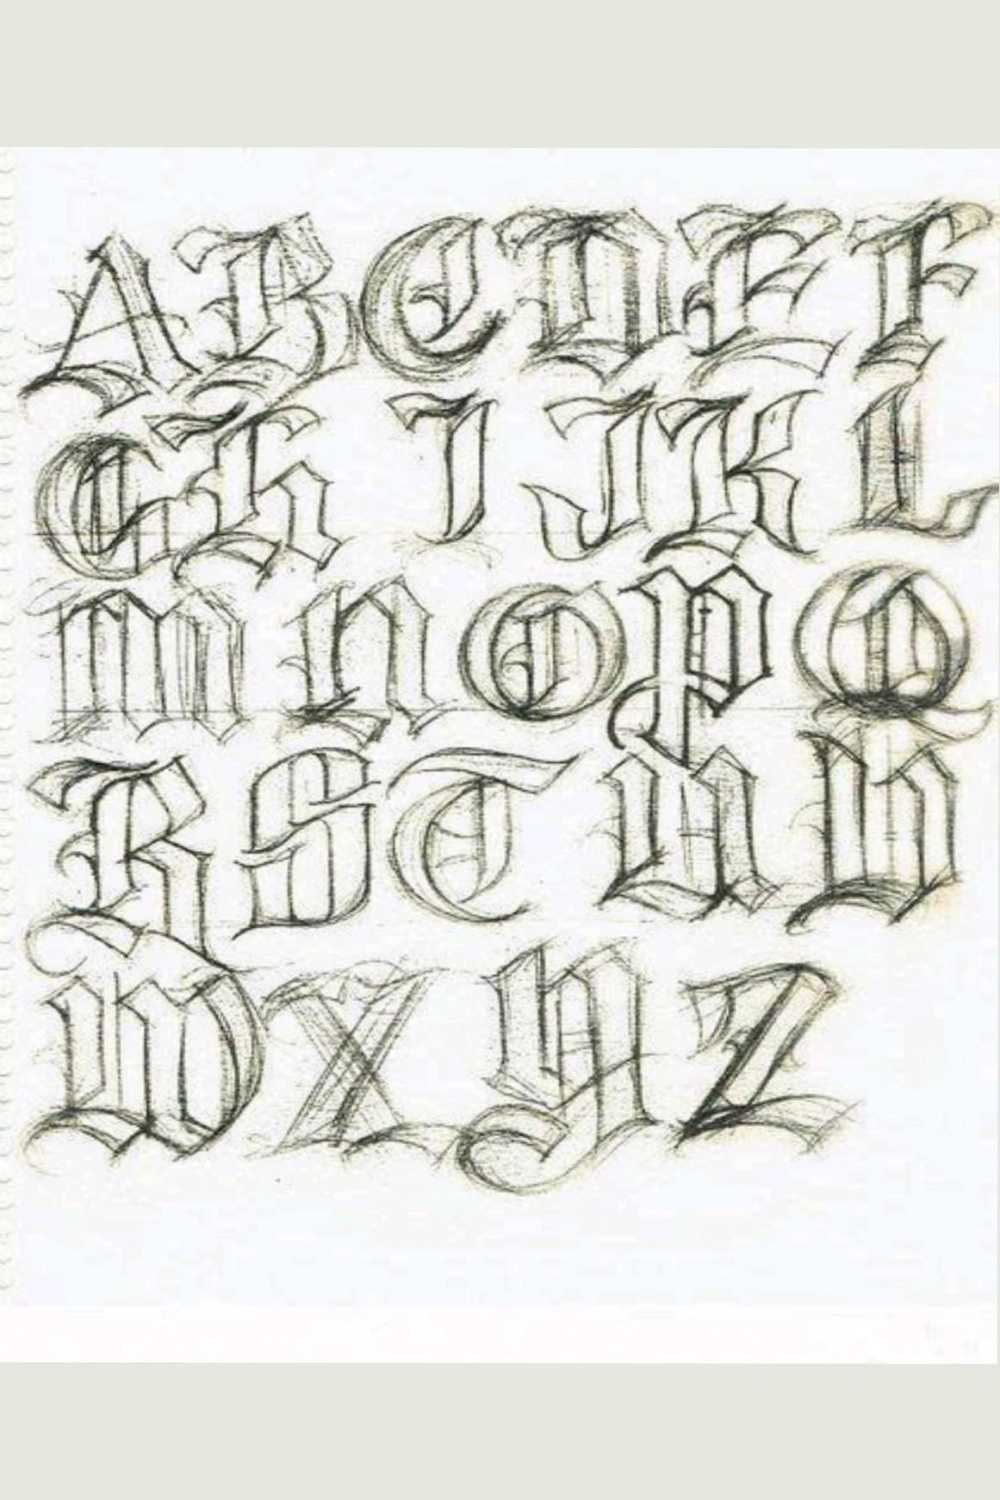 ABCDEF
Gh IJKL
mnopQ
RSTUV
WXYZ